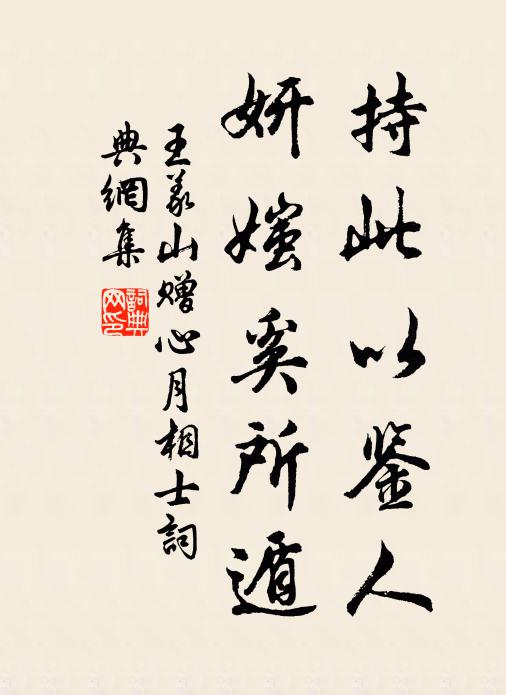 持此以鉴人
妍媸奚所遁
王义山赠心月相士詞
典網集
詞典网印